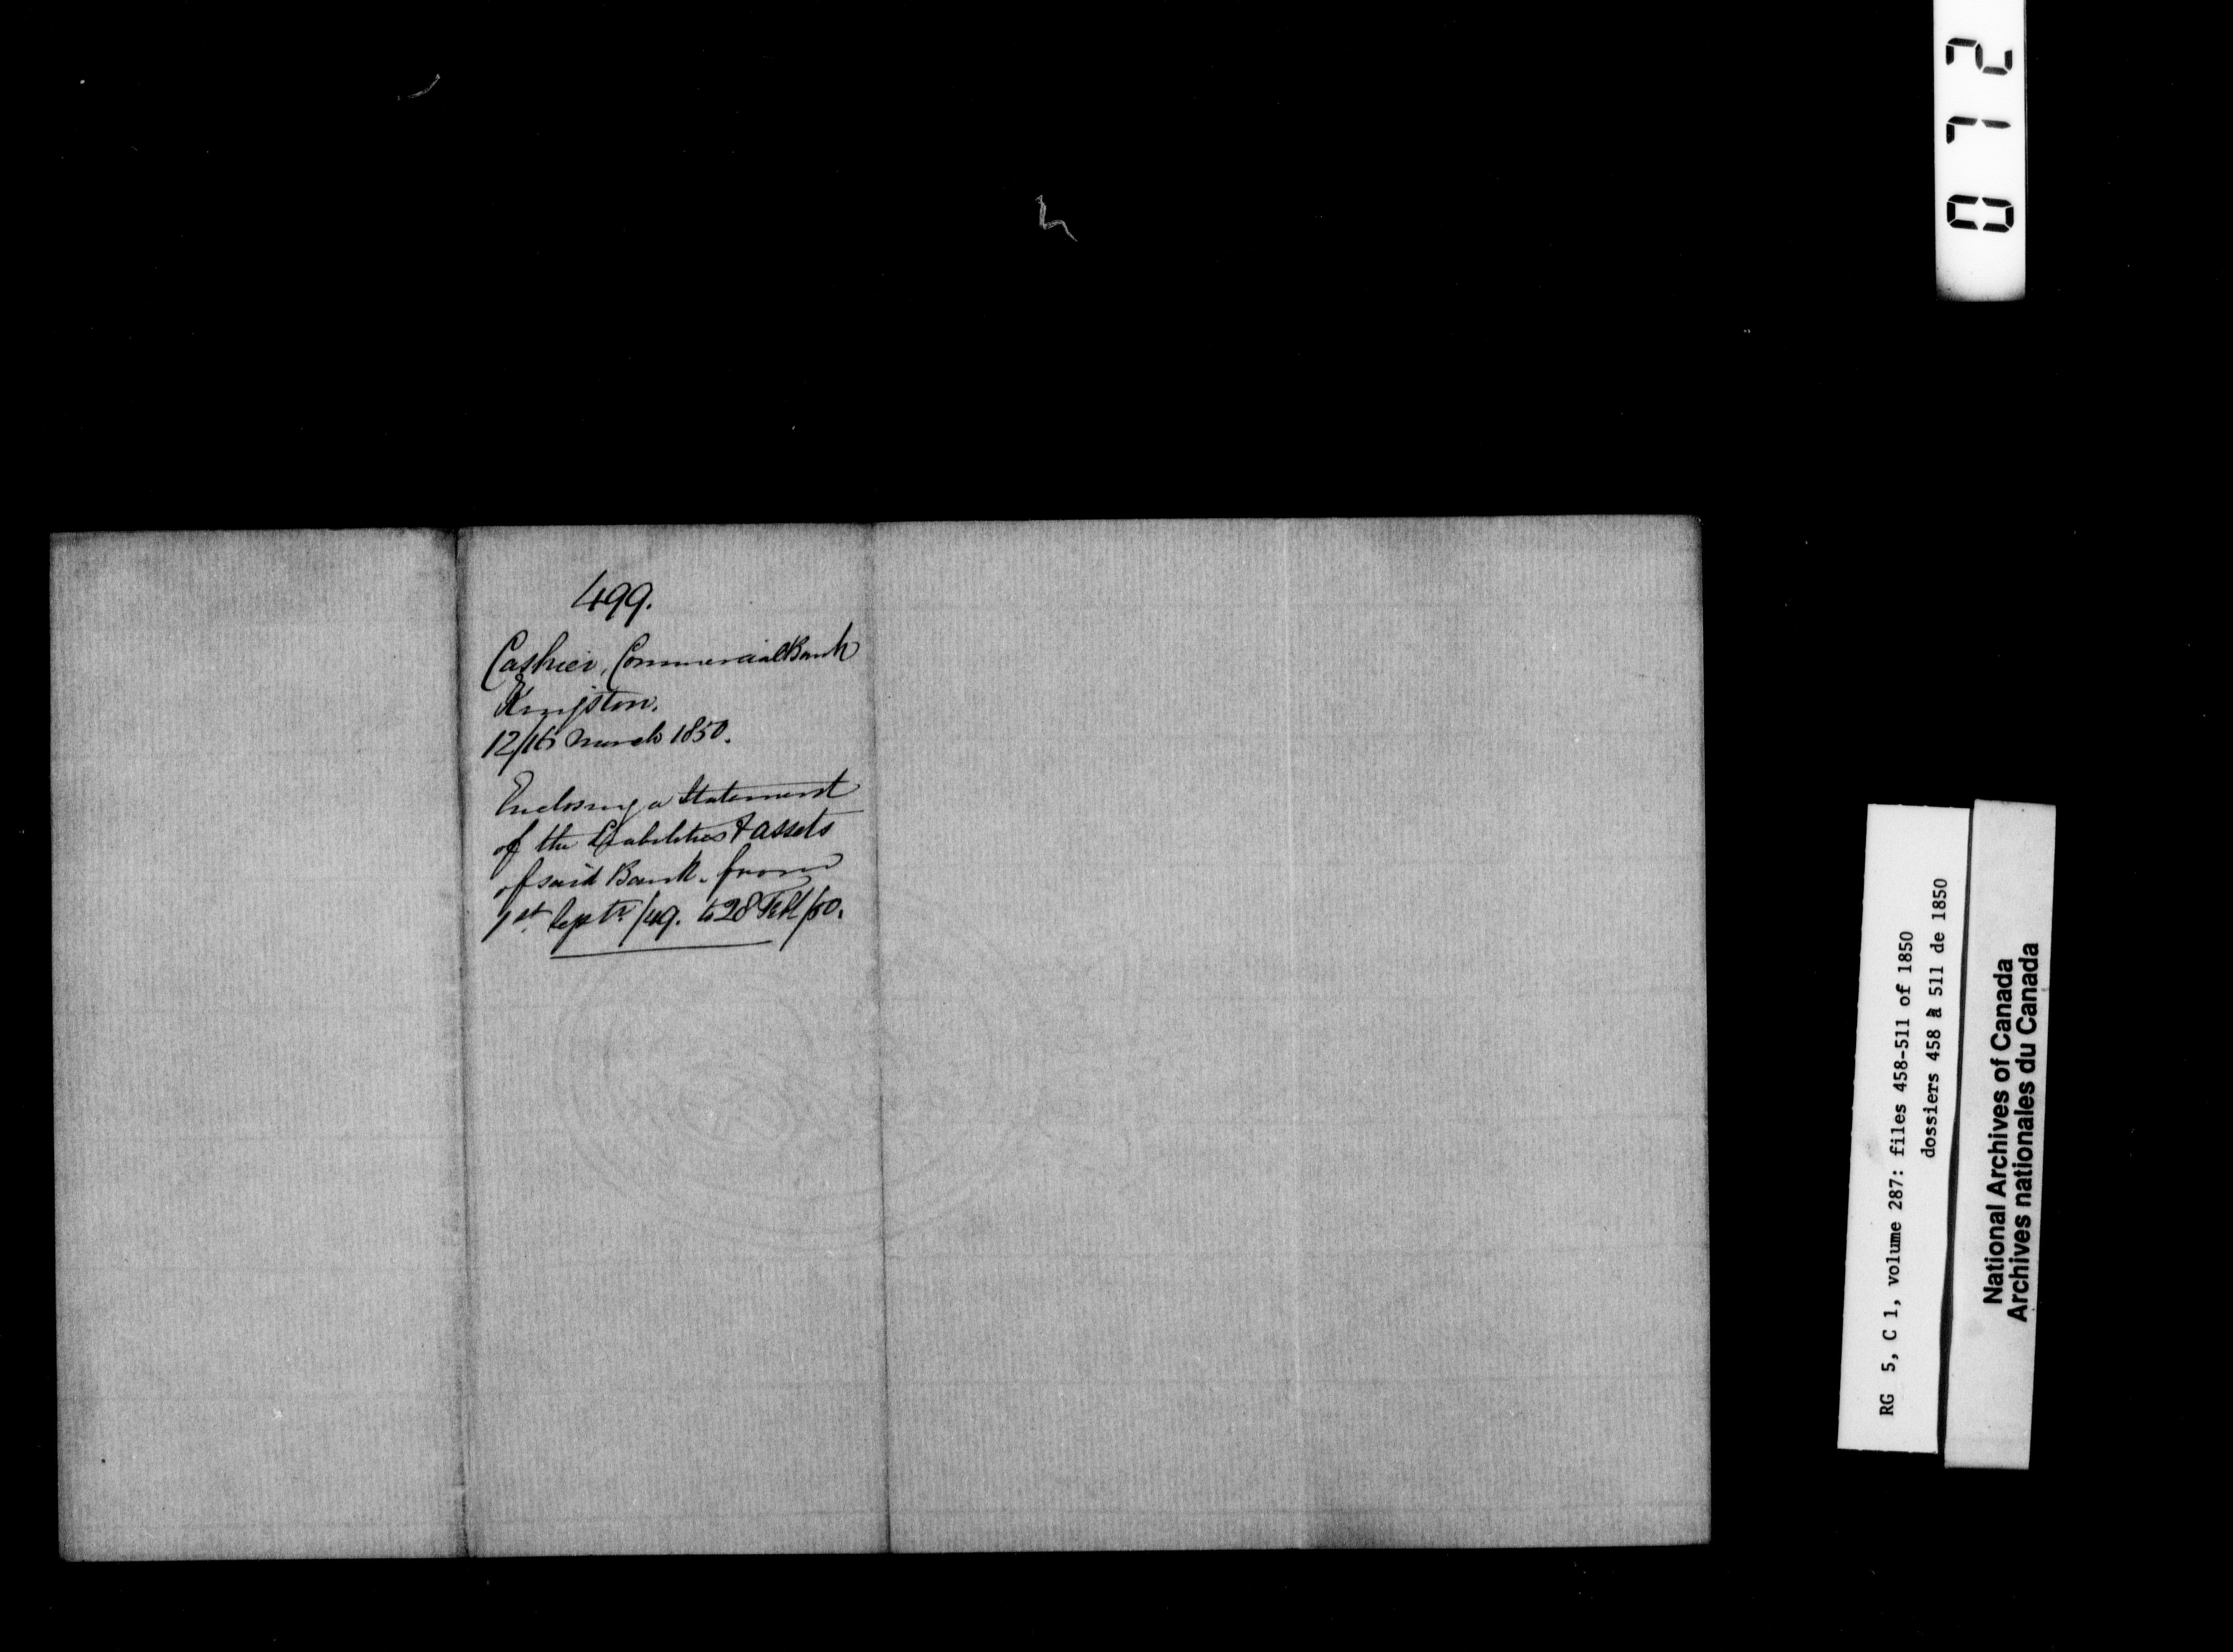 499.
Cashier, Commercial Bank
Kingston.
12/16 March 1850.
Enclosing a Statement
of the Liabilities & assets
of said Bank. from
1st Septr /49. to 28 Feb /50.
072
RG 5, C 1, volume 287: files 458-511 of 1850
dossiers 458 à 511 de 1850
National Archives of Canada
Archives nationales du Canada